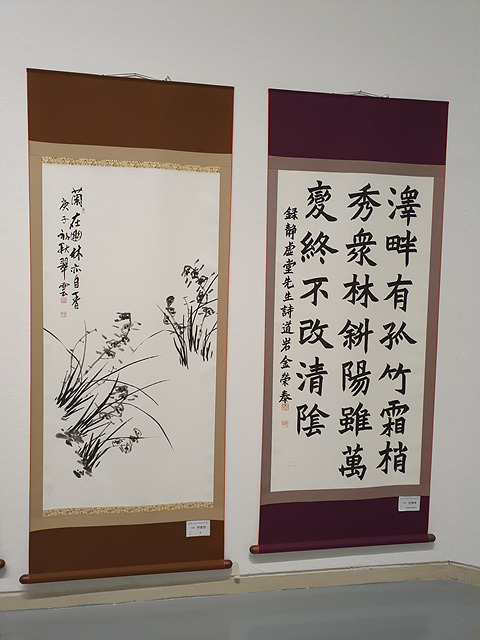 蘭在幽林亦自香
庚子初秋翠雲
澤畔有孤竹霜梢
秀衆林斜陽雖萬
變終不改清陰
録靜虛堂先生詩道岩金榮奉